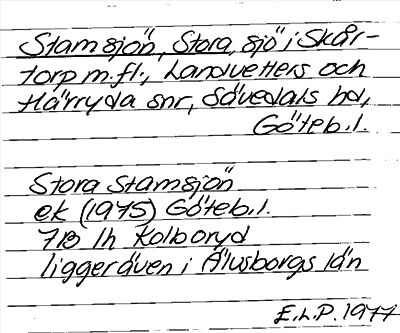 Stamsjön, Stora, sjö i Skår-
torp m.fl., Landvetters och
Härryda snr, Sävedals hd,
Göteb.l.
Stora Stamsjön
ek (1975) Göteb.l.
7B 1h Kolboryd
ligger även i Älvsborgs län
E.L.P. 1977